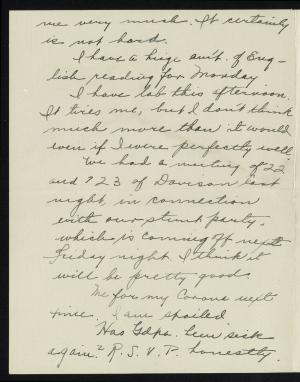 me very much. It certainly
is not hard.
I have a huge am't. of Eng-
lish reading for Monday
I have lab this afternoon.
It tires me, but I don't think
much more than it would
even if I were perfectly well
We had a meeting of '22
and '23 of Davison last
night, in connection
with our stunt party,
which is coming off next
Friday night. I think it
will be pretty good.
Me for my Corona next
time. I am spoiled
Has Gdpa. been sick
again? R. S. V. P. honestly